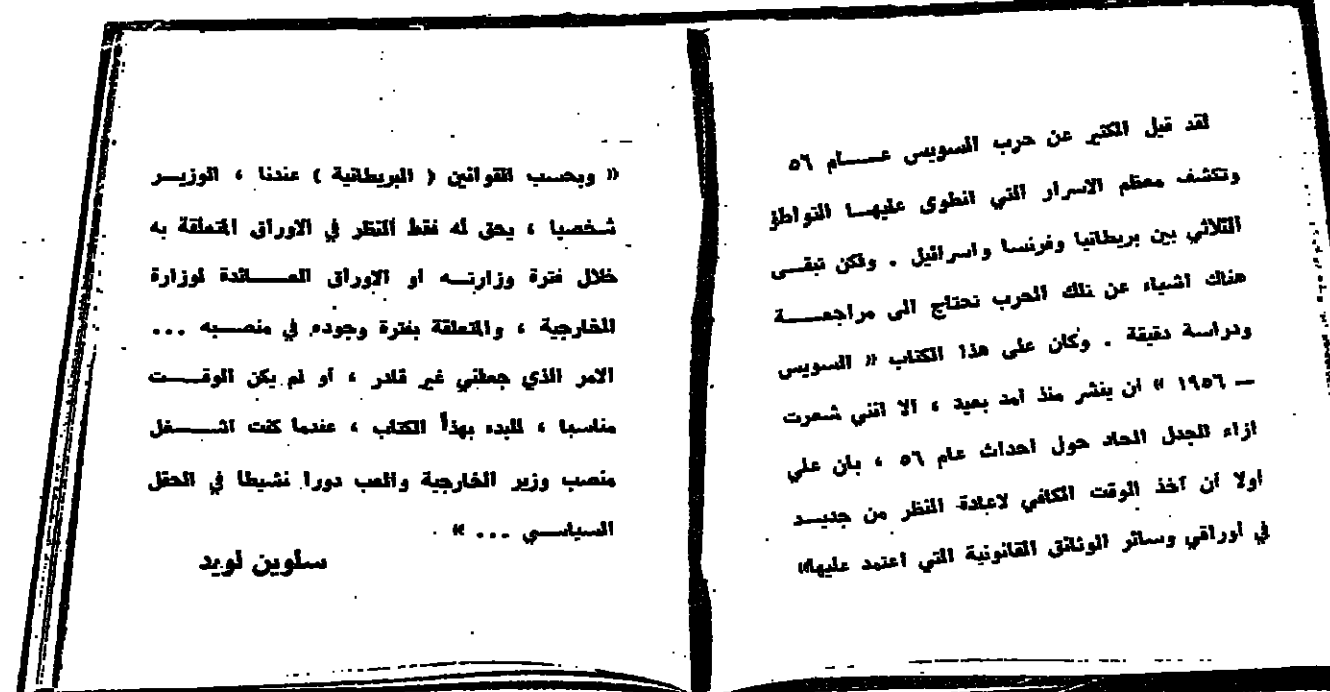 لقد قيل الكثير عن حرب السويس عـــــام ٥٦
وتكشف معظم الاسرار التي انطوى عليهـــا التواطؤ
الثلاثي بين بريطانيا وفرنسا واسرائيل . ولكن تبقــى
هناك اشياء عن تلك الحرب تحتاج الى مراجعـــــة
ودراسة دقيقة . وكان على هذا الكتاب « السويس
— ١٩٥٦ » ان ينشر منذ امد بعيد ، الا انني شعرت
ازاء الجدل الحاد حول احداث عام ٥٦ ، بان علي
اولا أن آخذ الوقت الكافي لاعادة النظر من جديــد
في أوراقي وسائر الوثائق القانونية التي اعتمد عليها»
« وبحسب القوانين ( البريطانية ) عندنا ، الوزيـــر
شخصيا ، يحق له فقط النظر في الاوراق المتعلقة به
خلال فترة وزارتــه او الاوراق العـــــائدة لوزارة
الخارجية ، والمتعلقة بفترة وجوده في منصـــبه ...
الامر الذي جعلني غير قادر ، أو لم يكن الوقــــت
مناسبا ، للبدء بهذا الكتاب ، عندما كنت اشـــــغل
منصب وزير الخارجية والعب دورا نشيطا في الحقل
السياســـي ... »
سلوين لويد